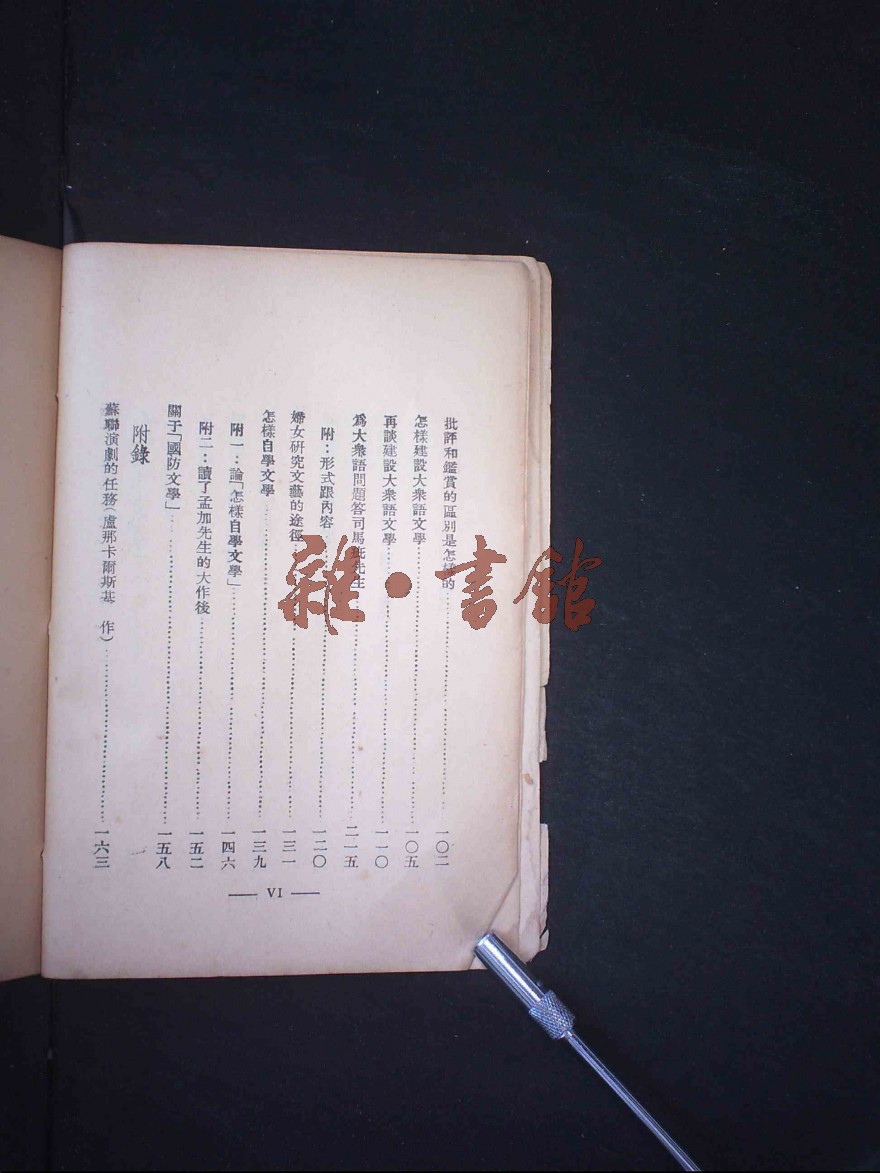 批評和鑑賞的區別是怎樣的……一〇二
怎樣建設大衆語文學……一〇五
再談建設大衆語文學……一一〇
爲大衆語問題答司馬疵先生……二一五
附：形式跟內容……一二〇
婦女研究文藝的途徑……一三一
怎樣自學文學……一三九
附一：論「怎樣自學文學」……一四六
附二：讀了孟加先生的大作後……一五二
關于「國防文學」……一五八
附錄
蘇聯演劇的任務（盧那卡爾斯基 作）……一六三
— VI —
雜·書館